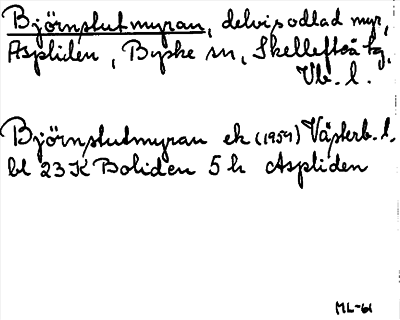 Björnslutmyran, delvis odlad myr,
Aspliden, Byske sn, Skellefteå tg,
Vb. l.
Björnslutmyran ek (1959) Västerb. l.
bl 23 K Boliden 5 h Aspliden
ML-61